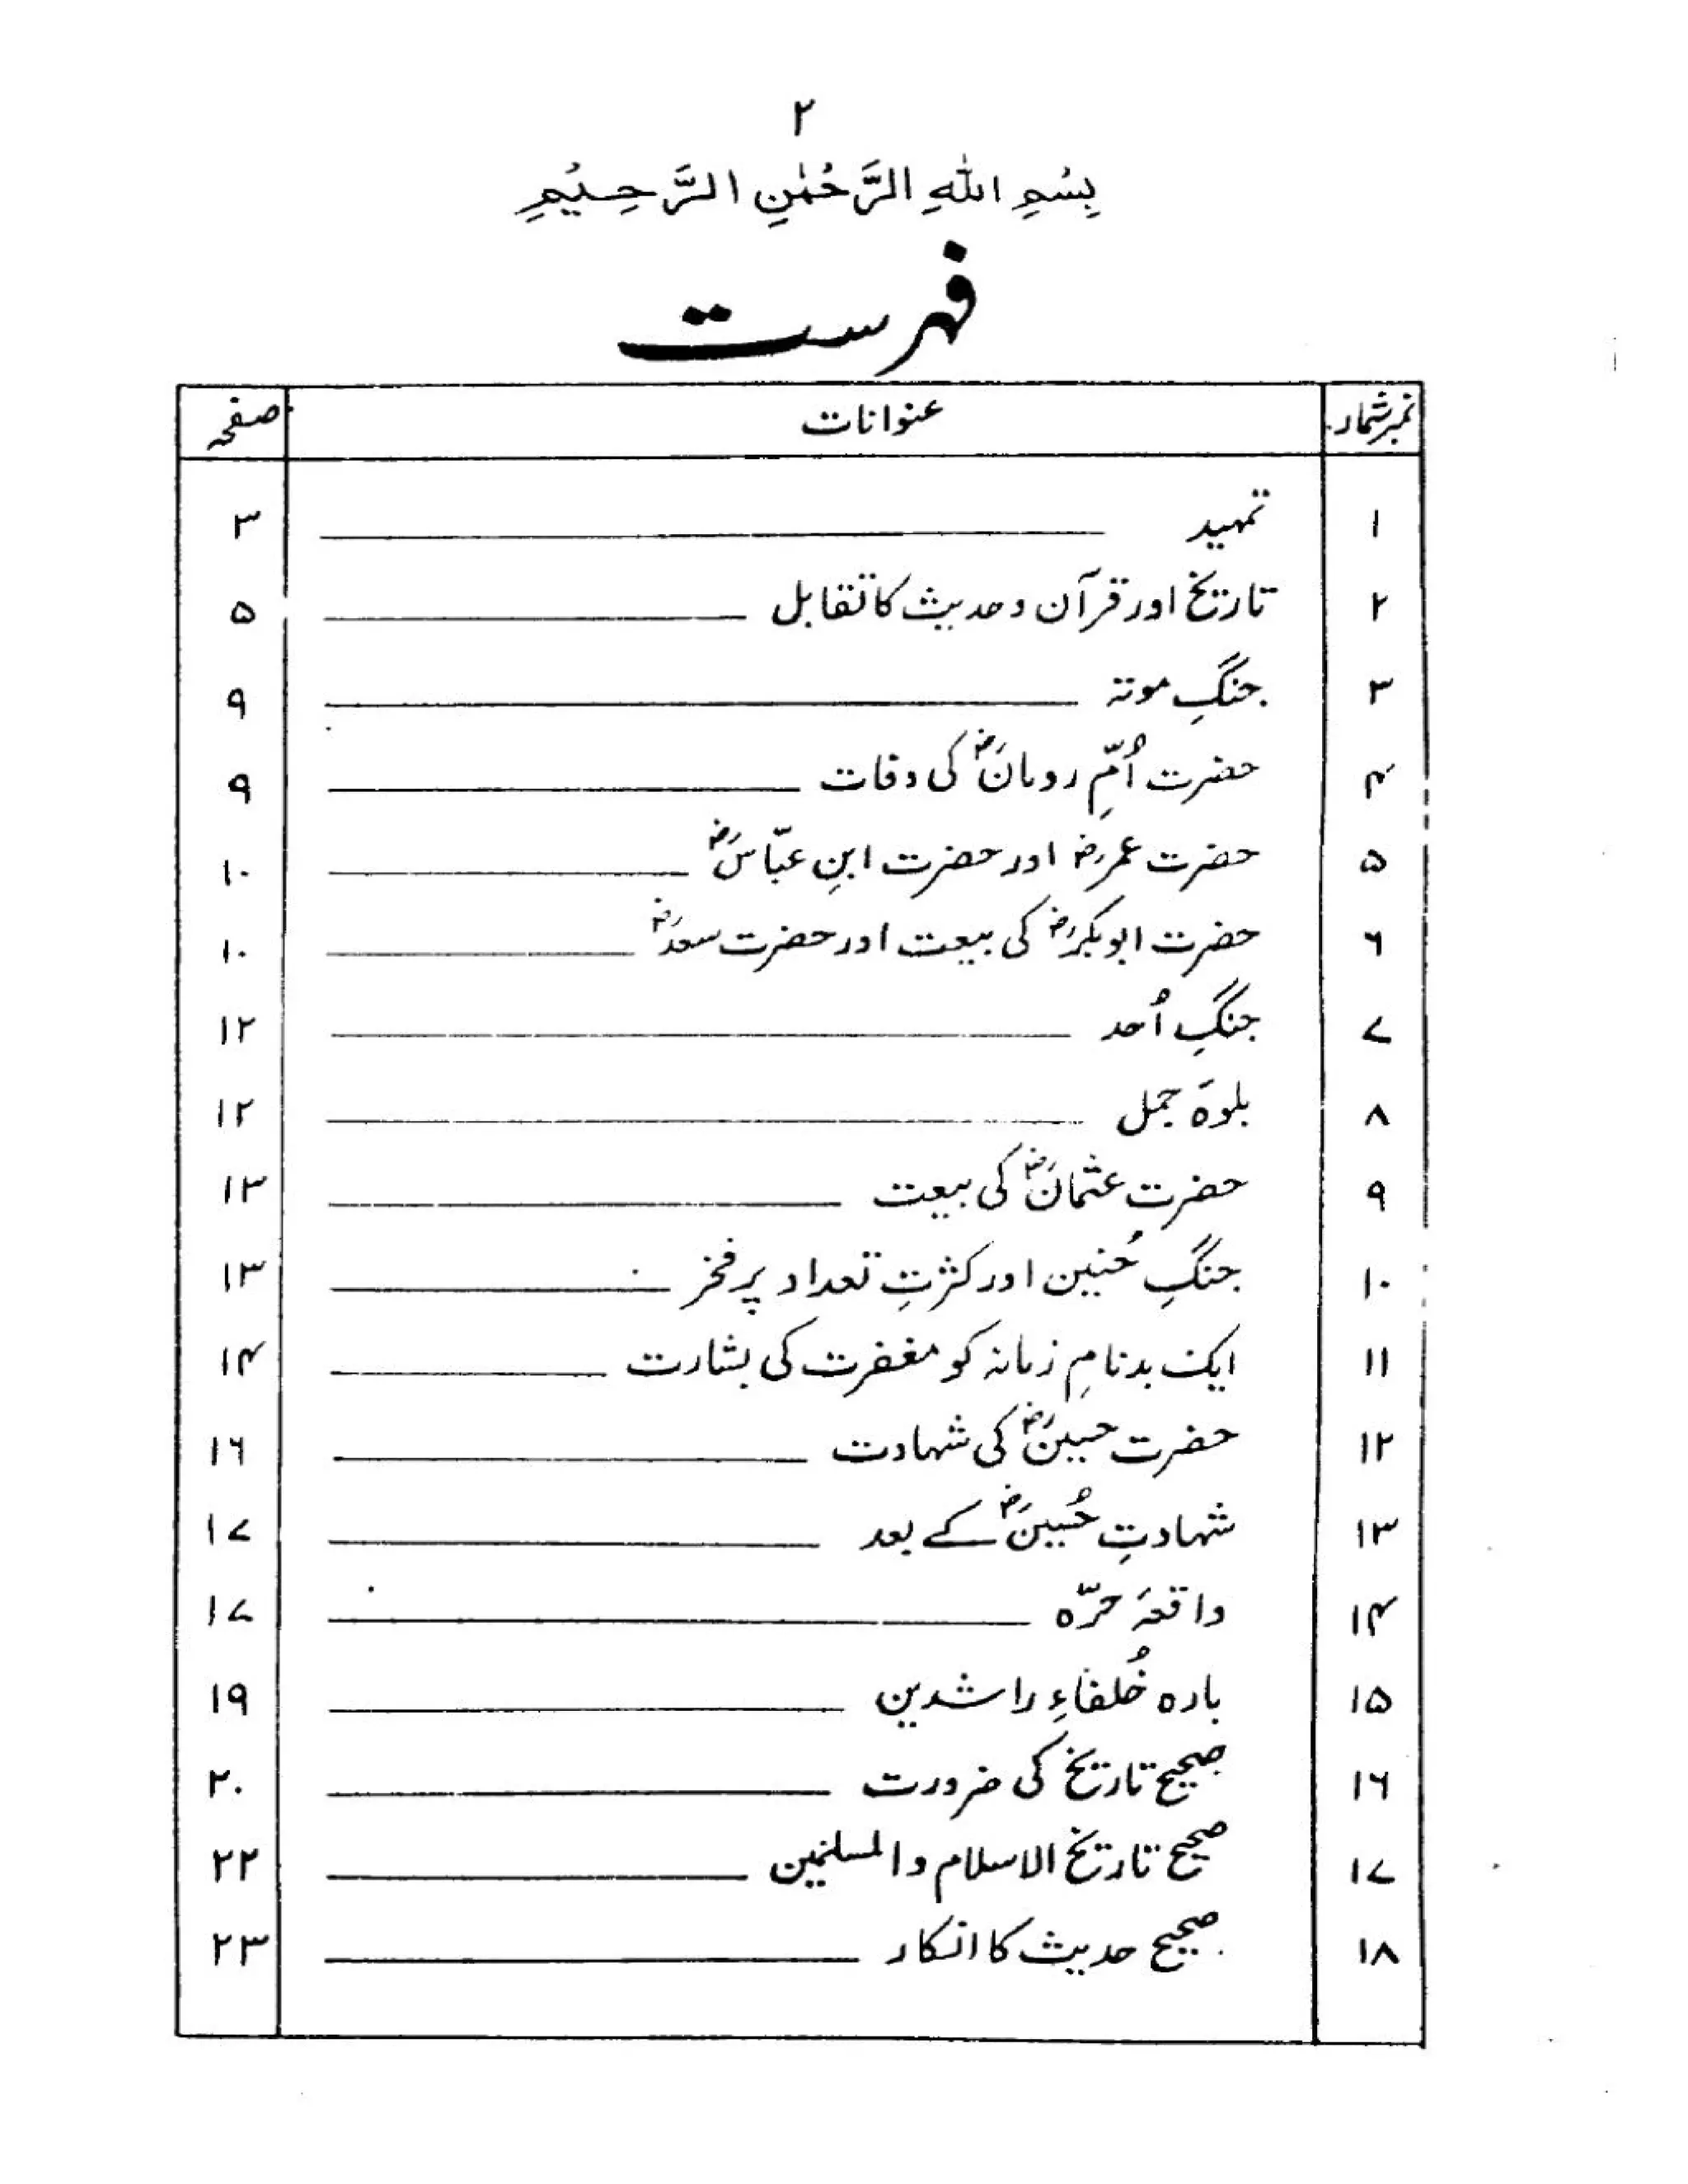 ۲
بِسْمِ اللّٰهِ الرَّحْمٰنِ الرَّحِيْمِ
فہرست
نمبر شمار عنوانات صفحہ
۱ تمہید ۳
۲ تاریخ اور قرآن و حدیث کا تقابل ۵
۳ جنگِ موتہ ۹
۴ حضرت اُمِّ رومانؓ کی وفات ۹
۵ حضرت عمرؓ اور حضرت ابنِ عبّاسؓ ۱۰
۶ حضرت ابوبکرؓ کی بیعت اور حضرت سعدؓ ۱۰
۷ جنگِ اُحد ۱۲
۸ بلوہَ جمل ۱۲
۹ حضرت عثمانؓ کی بیعت ۱۳
۱۰ جنگِ حُنین اور کثرتِ تعداد پر فخر ۱۳
۱۱ ایک بدنامِ زمانہ کو مغفرت کی بشارت ۱۴
۱۲ حضرت حسینؓ کی شہادت ۱۶
۱۳ شہادتِ حُسینؓ کے بعد ۱۷
۱۴ واقعہَ حرّہ ۱۷
۱۵ بارہ خُلفاءِ راشدین ۱۹
۱۶ صحیح تاریخ کی ضرورت ۲۰
۱۷ صحیح تاریخ الاسلام والمسلمین ۲۲
۱۸ صحیح حدیث کا انکار ۲۳